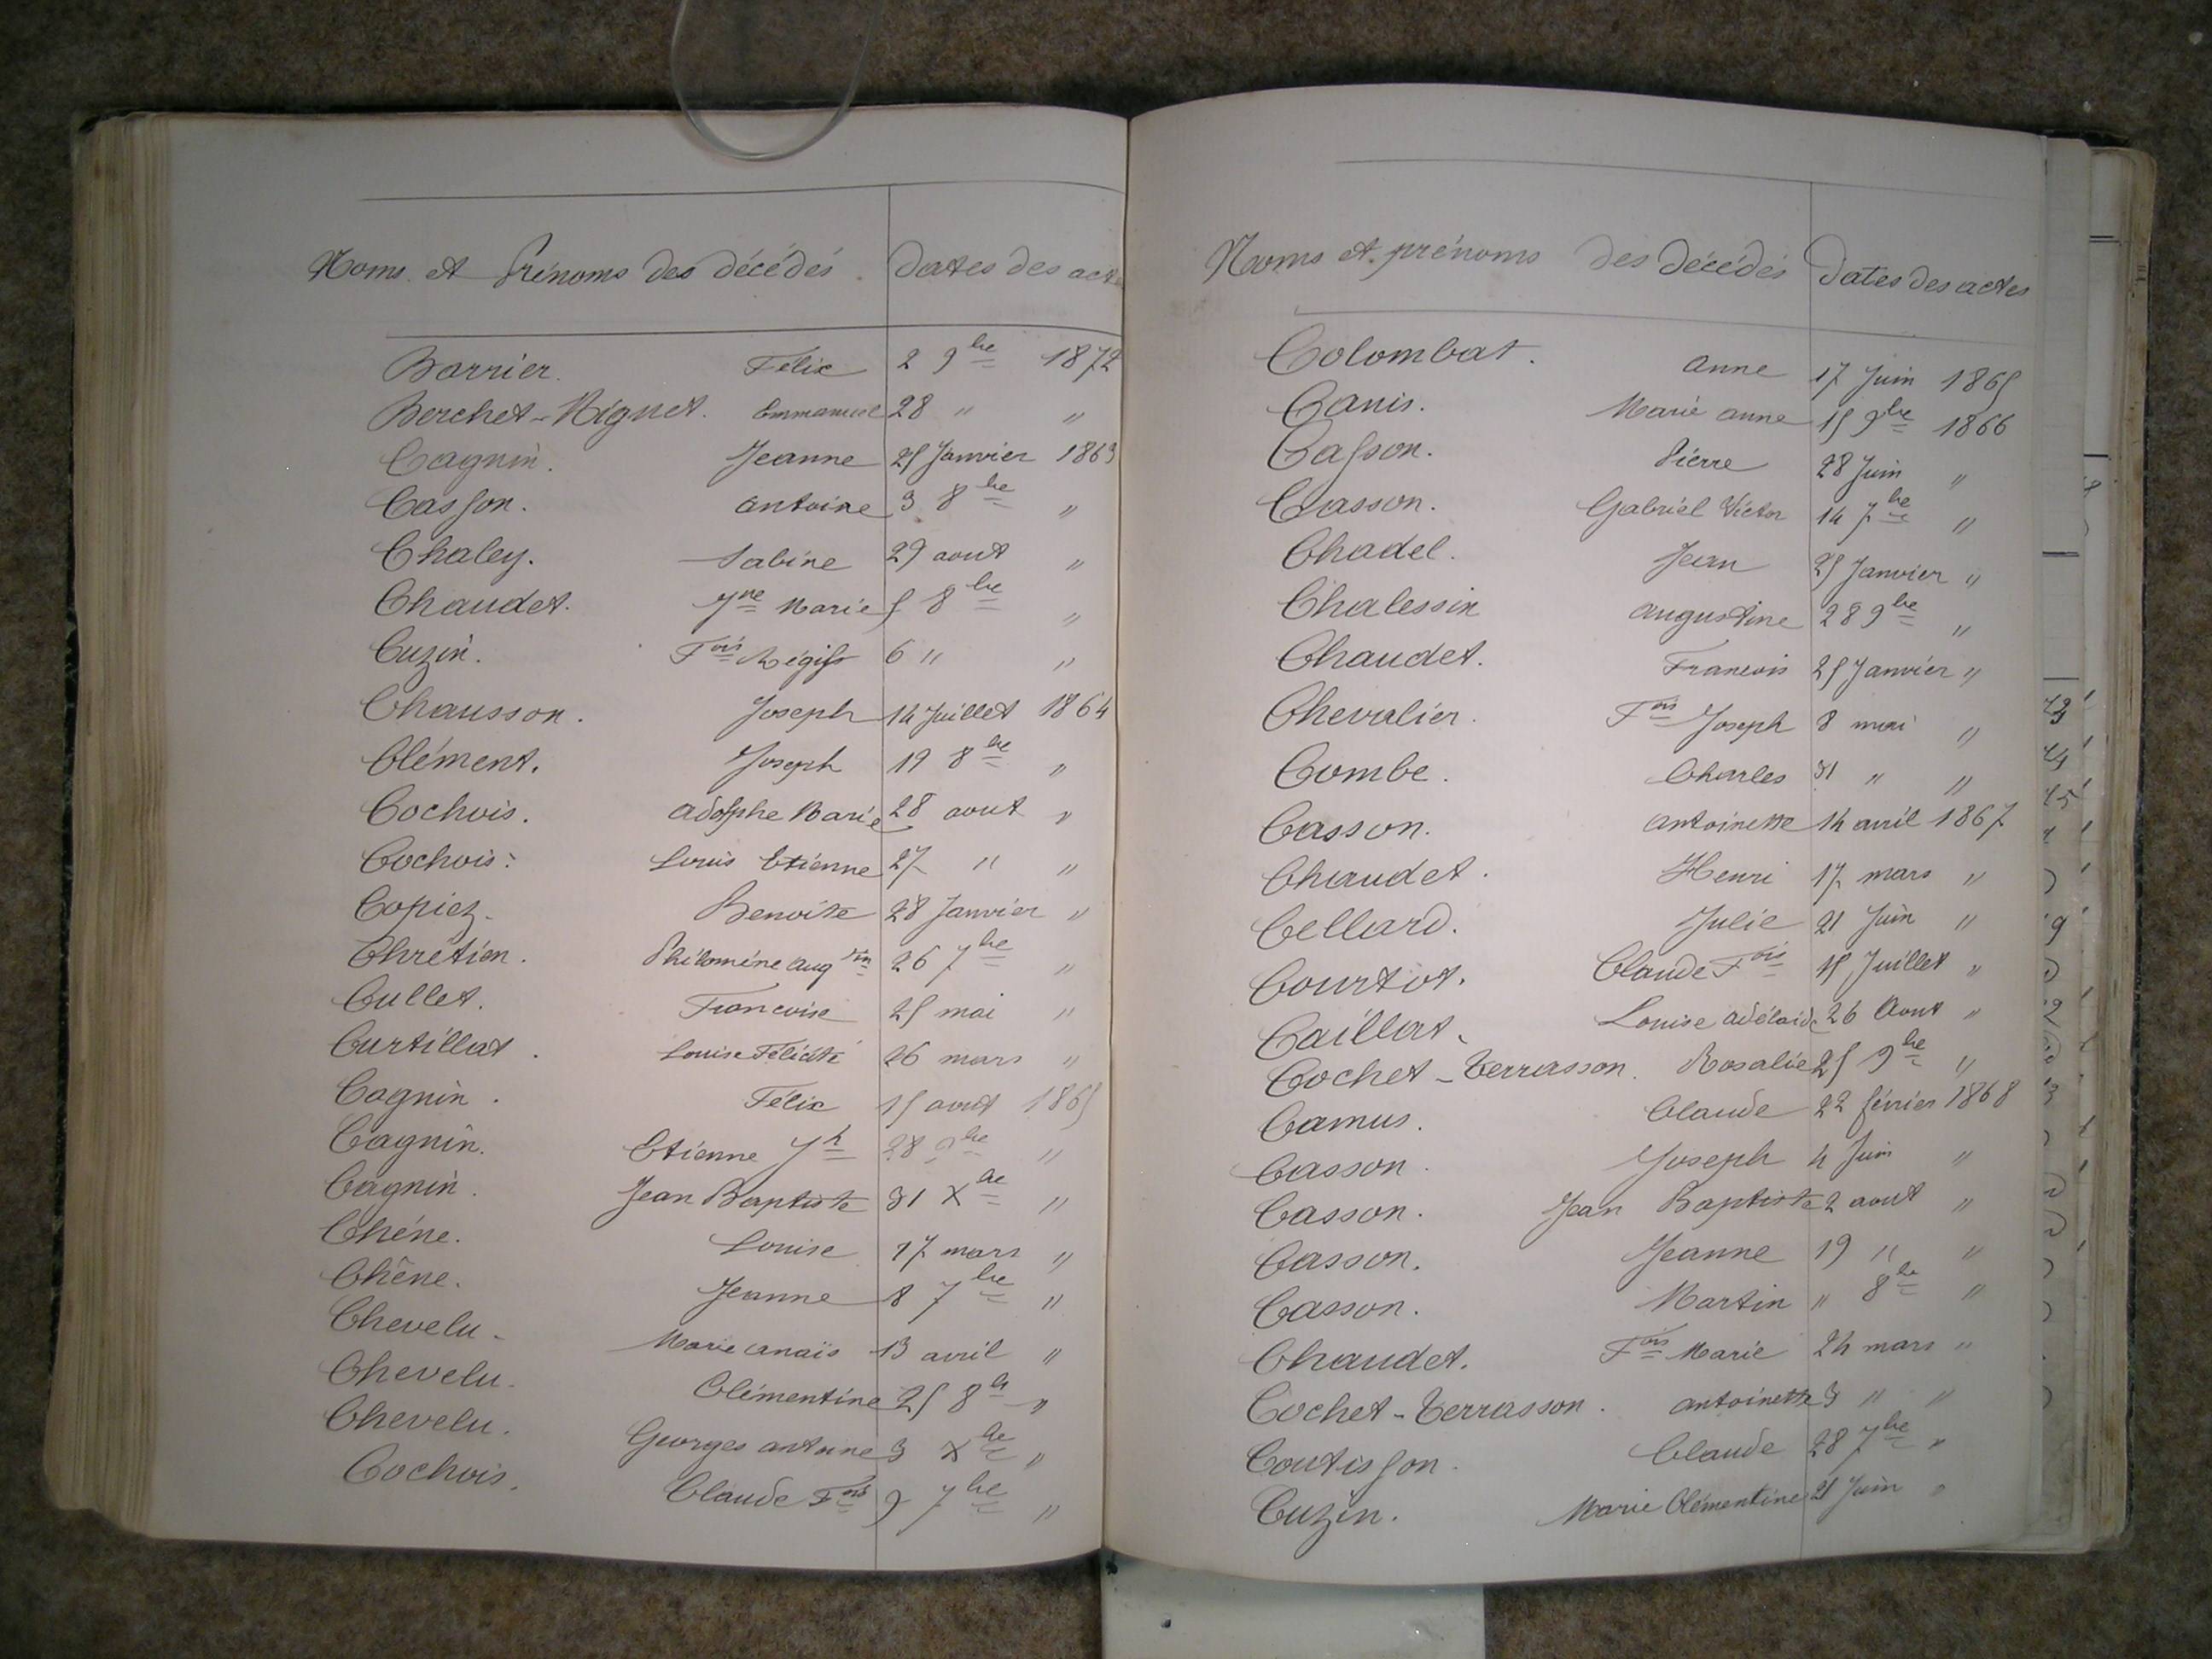 Noms et Prénoms des décédés Dates des act
Barrier. Félix 2 9bre 1872
Berchet-Mignet. Emmanuel 28 " "
Cagnin. Jeanne 25 Janvier 1863
Casson. antoine 3 8bre "
Chaley. Sabine 29 aout "
Chaudet. Jne Marie 5 8bre "
Cuzin. Fois Régis 6 " "
Chausson. Joseph 14 Juillet 1864
Clément. Joseph 19 8bre "
Cochois. Adolphe Marie 28 aout "
Cochois. Louis Etienne 27 " "
Copiez. Benoite 28 Janvier "
Chrétien. Philomène Augtin 26 7bre "
Cullet. Francoise 25 mai "
Curtillat. Louise Félicité 26 mars "
Cagnin. Félix 15 aout 1865
Cagnin. Etienne Jh 28 9bre "
Cagnin. Jean Baptiste 31 Xbre "
Chéne. Louise 17 mars "
Chêne. Jeanne 8 7bre "
Chevelu. Marie anaïs 13 avril "
Chevelu. Clémentine 25 8bre "
Chevelu. Georges antoine 3 Xbre "
Cochois. Claude Fois 9 7bre "
Noms et prénoms des décédés Dates des actes
Colombat. Anne 17 Juin 1865
Canis. Marie anne 15 9bre 1866
Casson. Pierre 28 Juin "
Casson. Gabriel Victor 14 7bre "
Chadel. Jean 25 Janvier "
Chalessin Augustine 28 9bre "
Chaudet. Francois 25 Janvier "
Chevalier. Fois Joseph 8 mai "
Combe. Charles 31 " "
Casson. Antoinette 14 avril 1867
Chaudet. Henri 17 mars "
Cellard. Julie 21 Juin "
Courtot. Claude Fois 15 Juillet "
Caillat. Louise Adélaide 26 Aout "
Cochet-Terrasson. Rosalie 25 9bre "
Camus. Claude 22 février 1868
Casson. Joseph 4 Juin "
Casson. Jean Baptiste 2 aout "
Casson. Jeanne 19 " "
Casson. Martin " 8bre "
Chaudet. Fois Marie 24 mars "
Cochet-Terrasson. antoinette 3 " "
Coutisson. Claude 28 7bre "
Cuzin. Marie Clémentine 21 Juin "